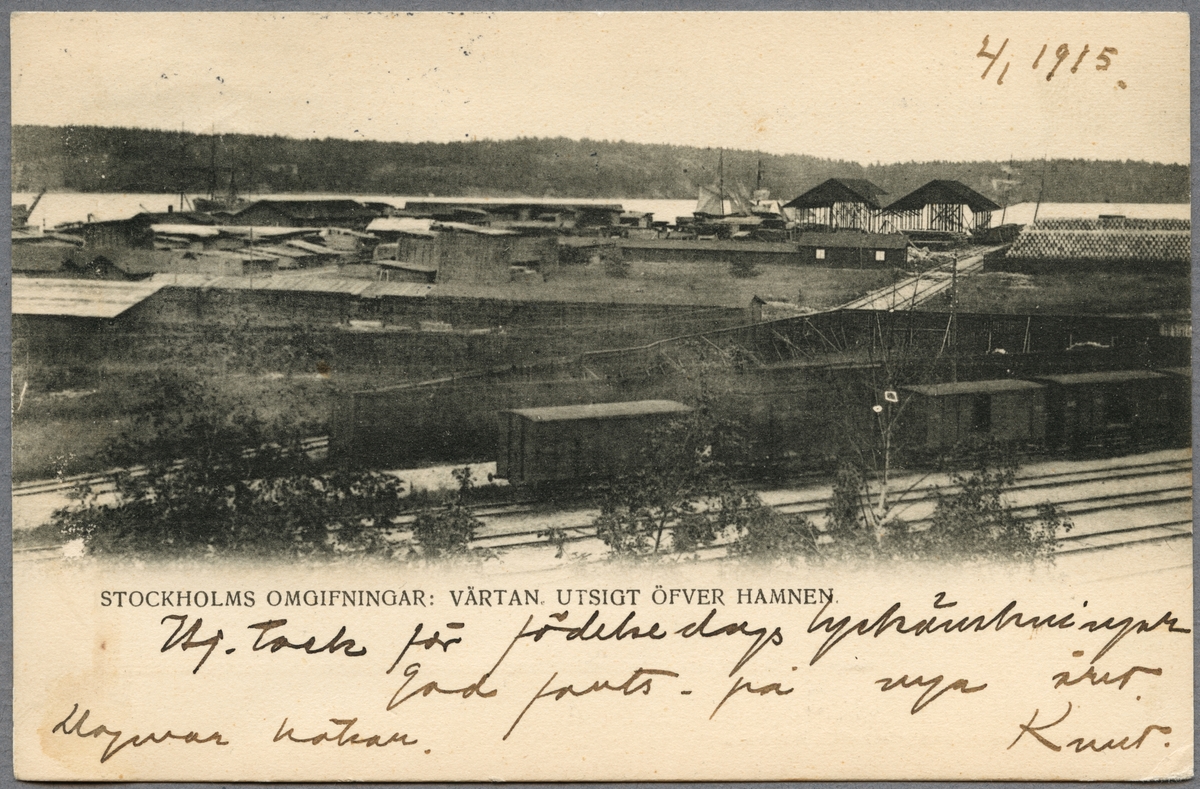 4/1 1915.
STOCKHOLMS OMGIFNINGAR: VÄRTAN. UTSIGT ÖFVER HAMNEN.
Hj. tack för födelsedags lyckönskningar
God forts. på nya året.
Dagmar hälsar.
Knut.